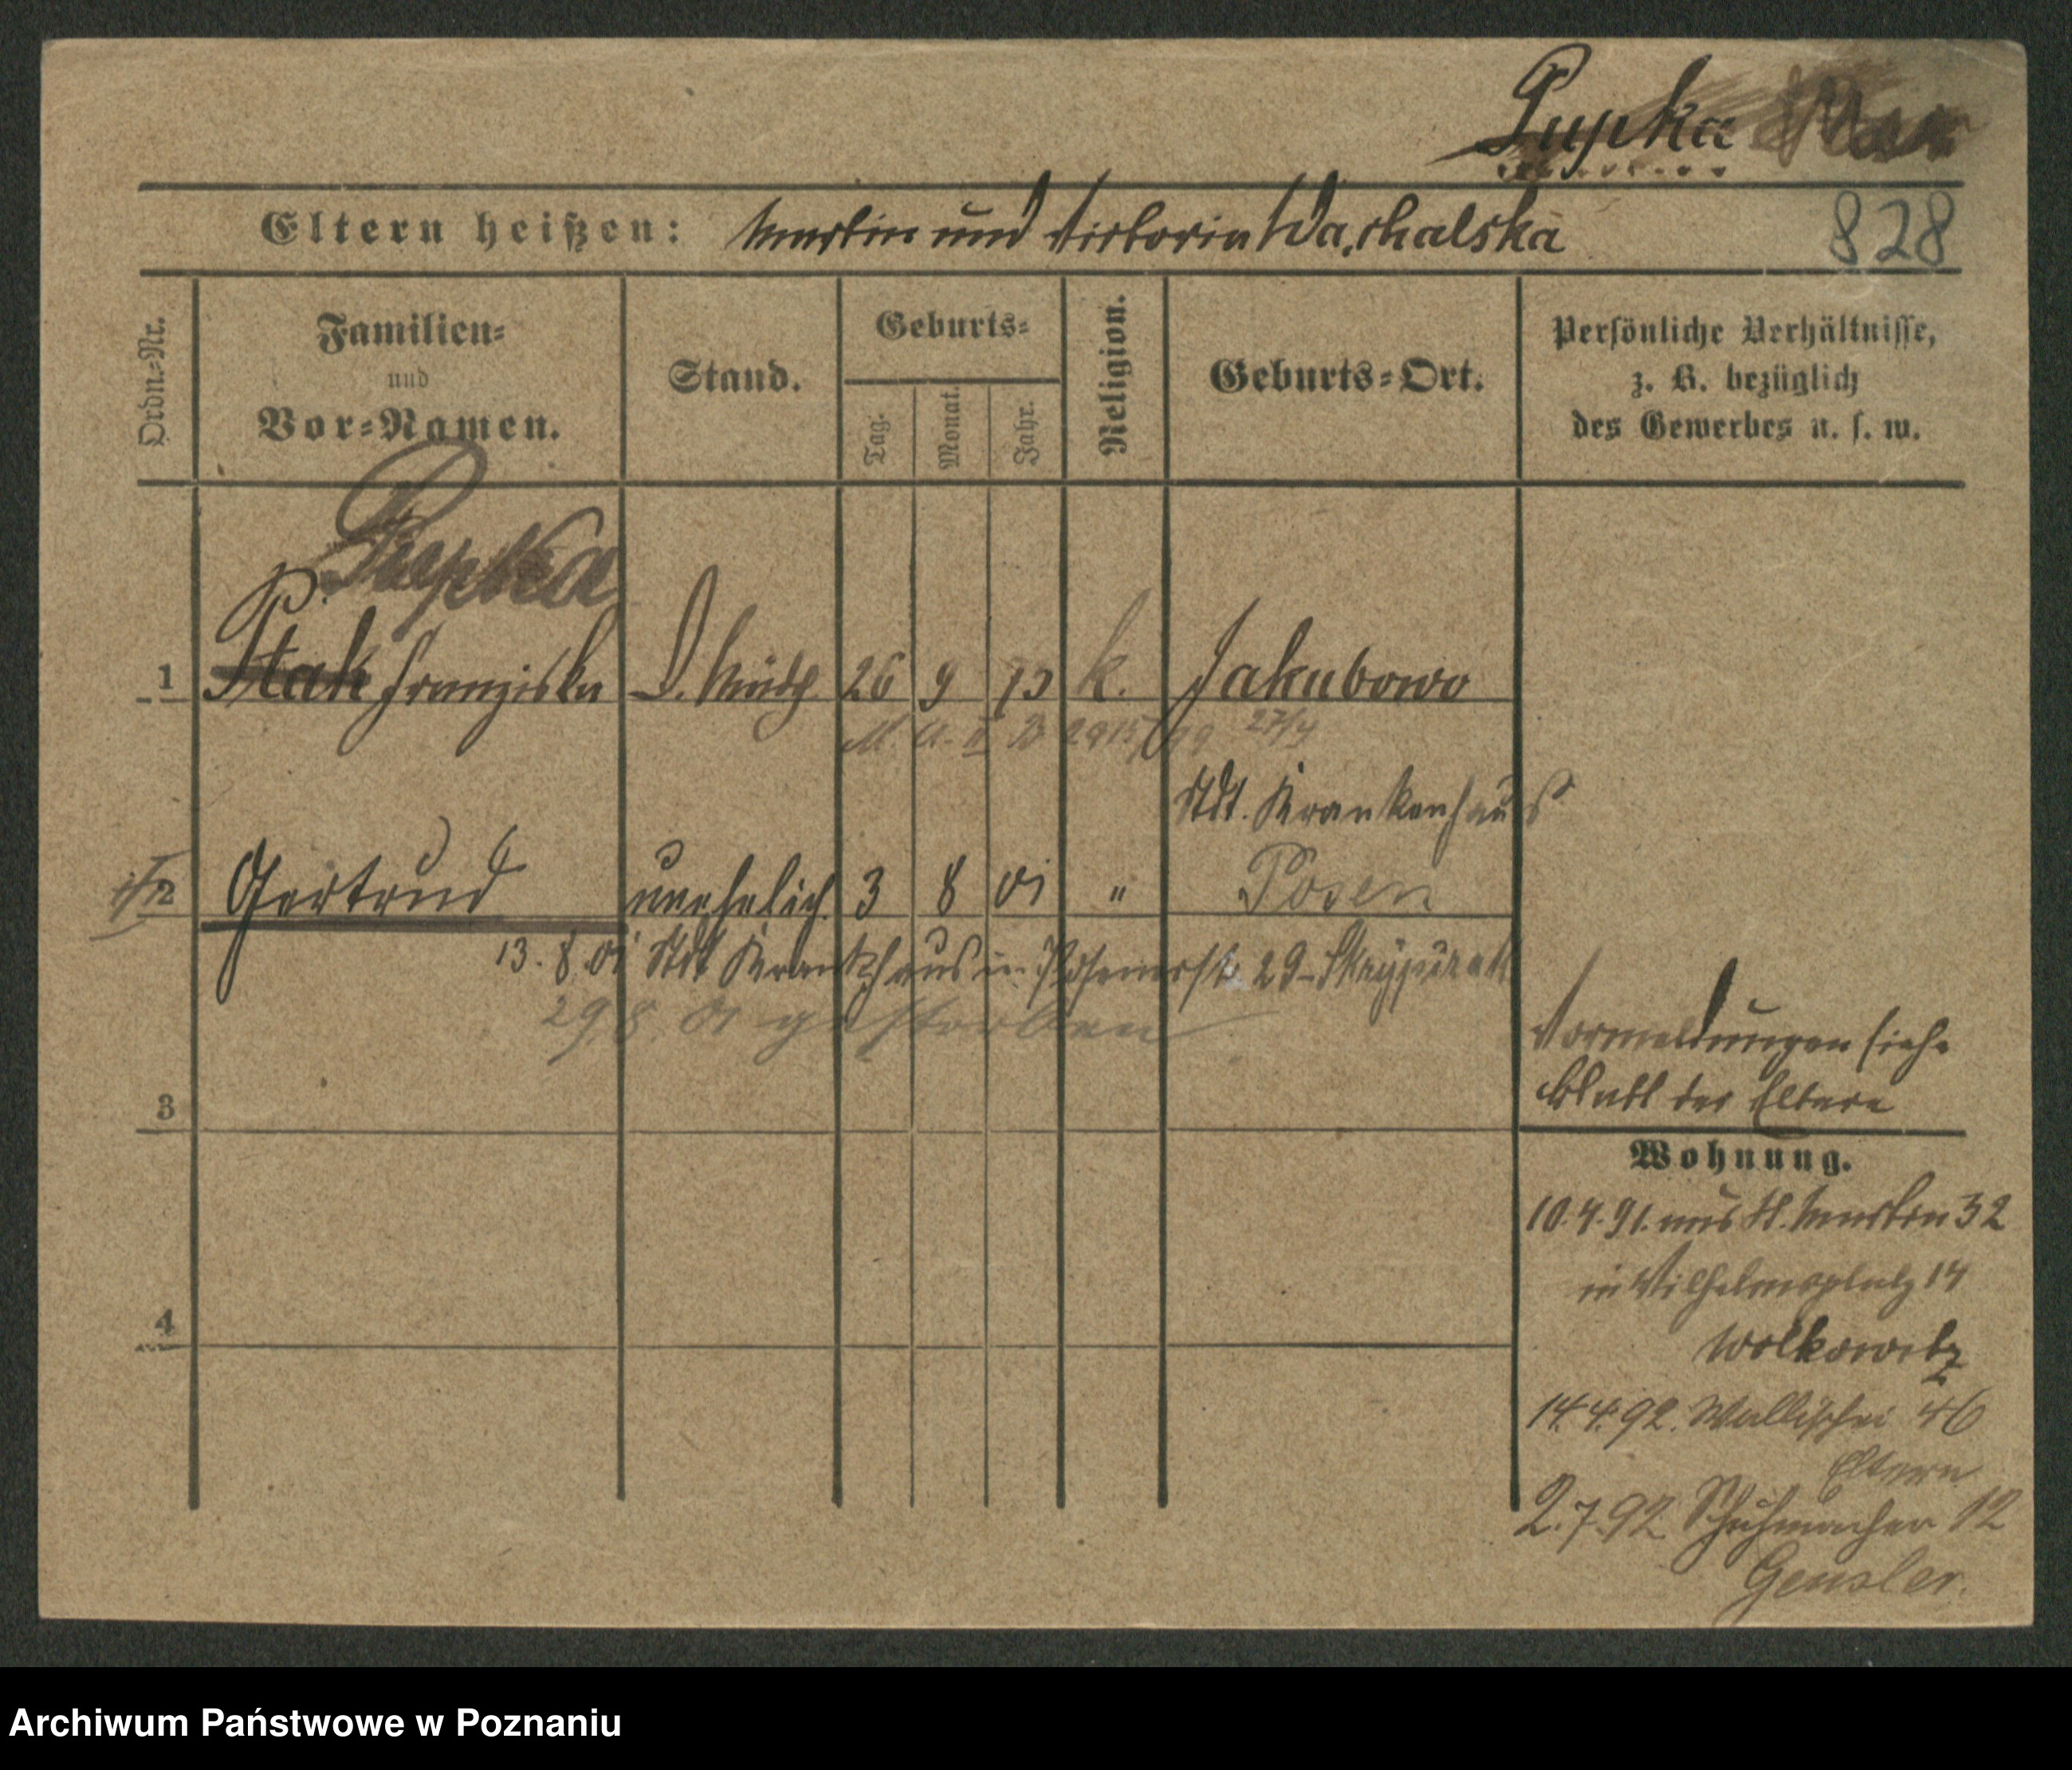 Pupka
Eltern heißen: Martin und Victoria Walchalska
828
Ordn.-Nr.
Familien-
und
Vor-Namen.
Stand.
Geburts-
Tag.
Monat.
Jahr.
Religion.
Geburts-Ort.
Persönliche Verhältnisse,
z. B. bezüglich
des Gewerbes u. s. w.
Pupka
1 Ptak Franziska D. Mädch. 26 9 75 k. Jakubowo
M. A. II B 2915/99 27/4
Std. Krankenhaus
2 Gertrud unehelich 3 8 01 " Posen
13. 8. 01 Std Krankhaus in 29
29.8. 01 gestorben
Vormeldungen siehe
Blatt der Eltern
3
Wohnung.
10.4.91. aus St. Martin 32
in Wilhelmsplatz 14
Wolkowitz
4
14.4.92. Wallischei 46
Eltern
2.7.92 Schuhmacher 12
Gensler.
Archiwum Państwowe w Poznaniu